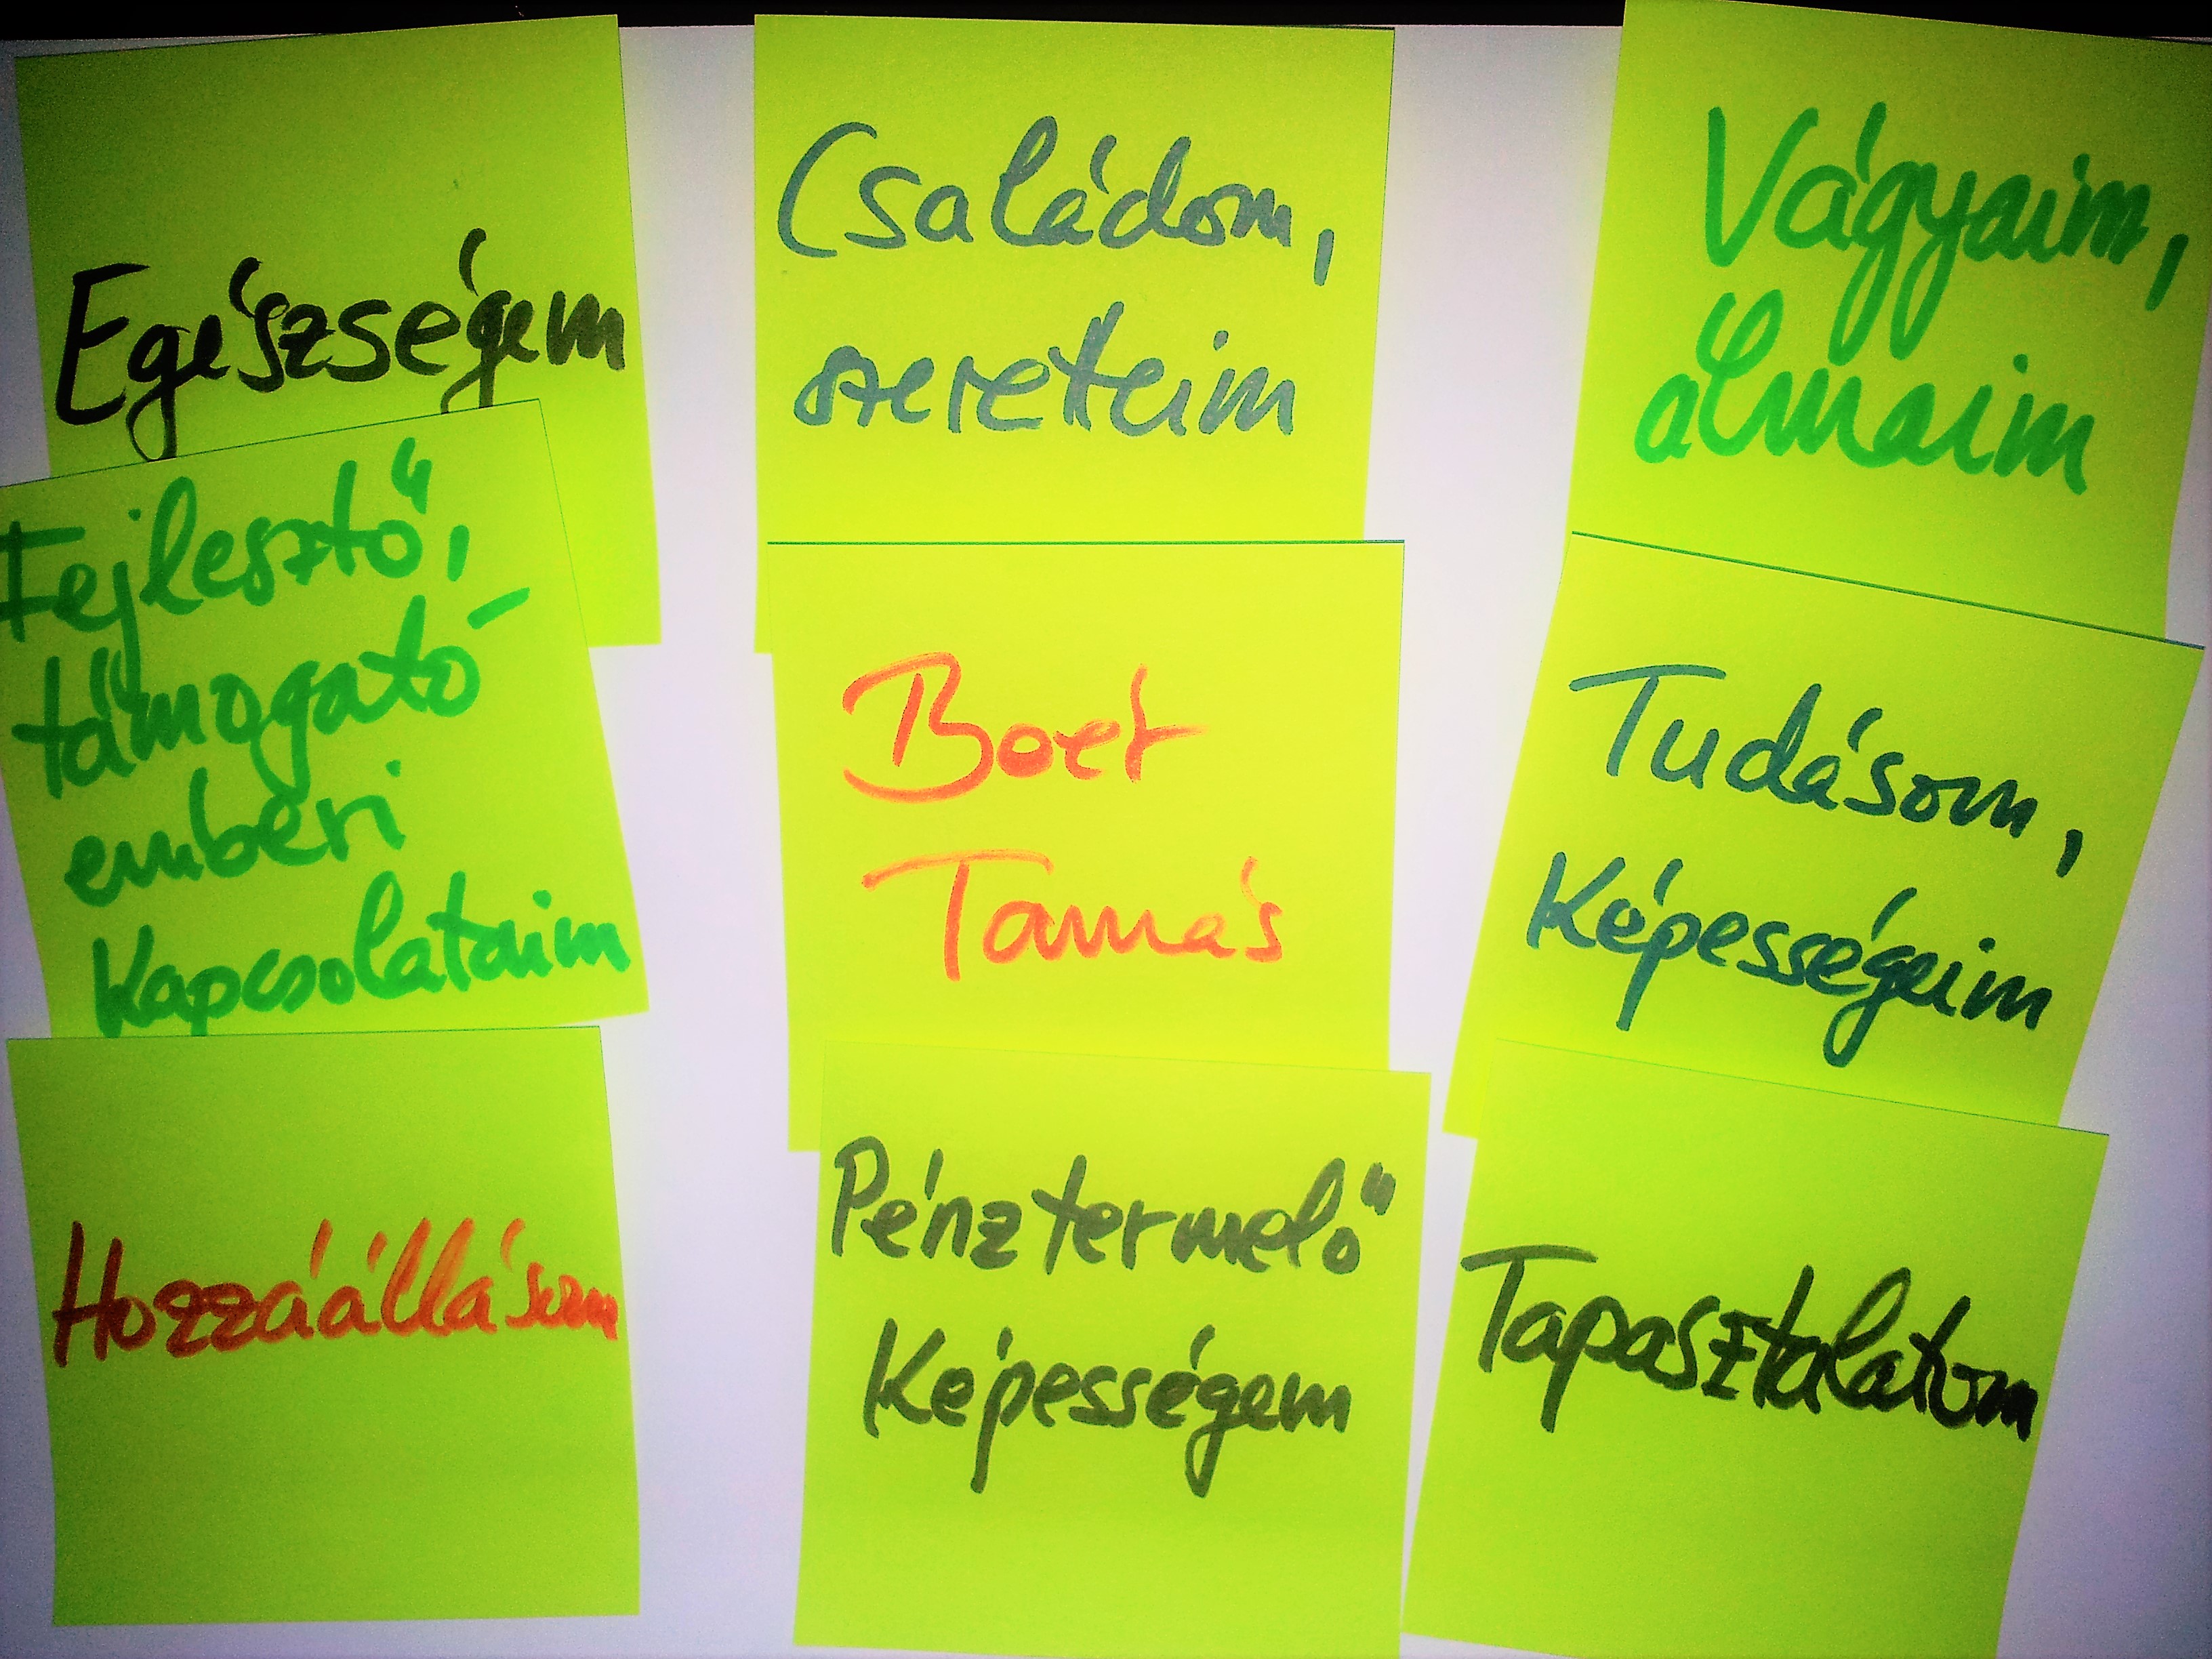 Egészségem
Családom,
szereteim
Vágyaim,
álmaim
Fejlesztő,
támogató
emberi
Kapcsolataim
Boer
Tamás
Tudásom,
Képességeim
Hozzáállásom
Pénztermelő
Képességem
Tapasztalatom